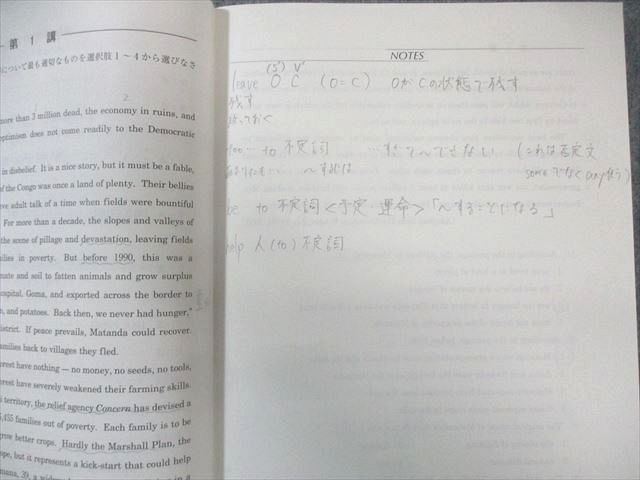 第1講
について最も適切なものを選択肢1～4から選びなさ
more than 3 million dead, the economy in ruins, and
optimism does not come readily to the Democratic
in disbelief. It is a nice story, but it must be a fable,
of the Congo was once a land of plenty. Their bellies
eve adult talk of a time when fields were bountiful
For more than a decade, the slopes and valleys of
the scene of pillage and devastation, leaving fields
ilies in poverty. But before 1990, this was a
mate and soil to fatten animals and grow surplus
capital, Goma, and exported across the border to
n, and potatoes. Back then, we never had hunger,"
district. If peace prevails, Matanda could recover.
amilies back to villages they fled.
orest have nothing — no money, no seeds, no tools,
orest have severely weakened their farming skills.
s territory, the relief agency Concern has devised a
5,455 families out of poverty. Each family is to be
grow better crops. Hardly the Marshall Plan, the
ope, but it represents a kick-start that could help
mana, 39, a
NOTES
(S') V'
leave O C (O=C) OがCの状態で残す
残す
to 不定詞 …すぎて〜できない (これは否定文
someでなくany使う)
be to 不定詞<予定・運命>「〜することになる」
help 人(to)不定詞